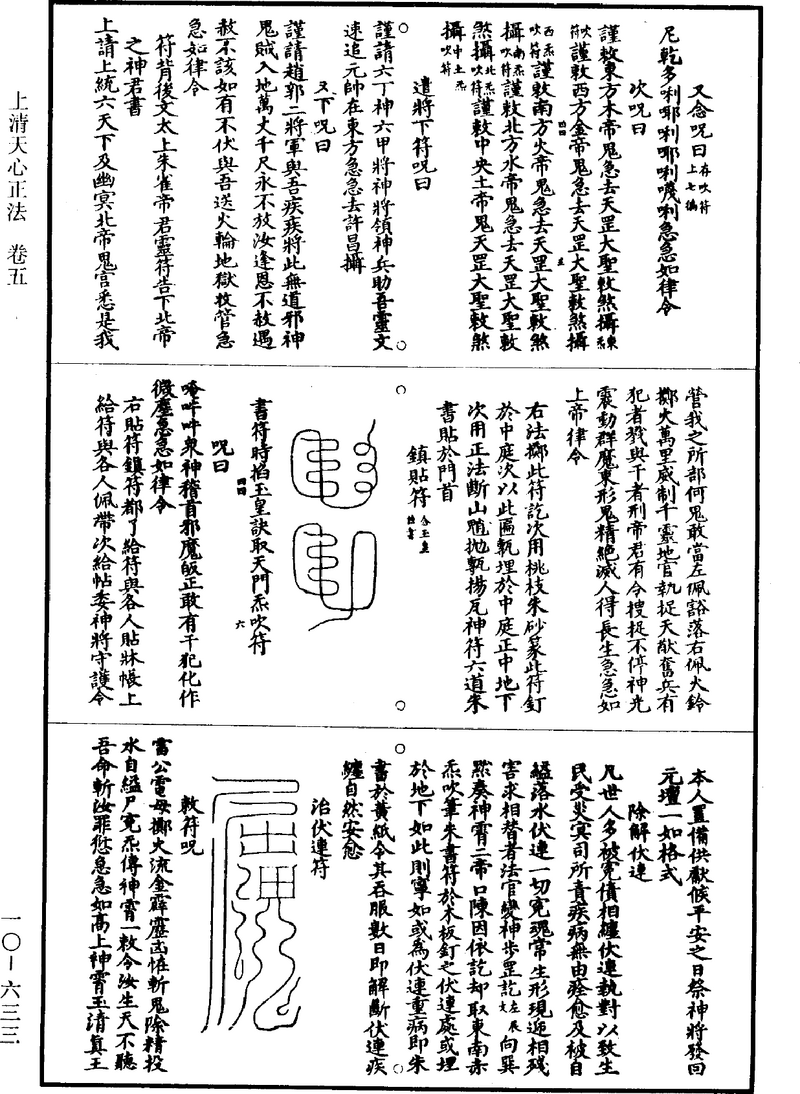 又念呪曰存吹符上七徧
尼乾多唎㖿唎㖿唎嘰唎急急如律令
吹呪曰
謹敕東方木帝鬼急去天罡大聖敕煞攝東炁
吹符謹敕西方金帝鬼急去天罡大聖敕煞攝
西炁吹符謹敕南方火帝鬼急去天罡大聖敕煞
攝南炁吹符謹敕北方水帝鬼急去天罡大聖敕
煞攝北炁吹符謹敕中央土帝鬼天罡大聖敕煞
攝中土炁吹符
遣將下符呪曰
謹請六丁神六甲將神將領神兵助吾靈文
速追元帥在東方急急去許昌攝
又下呪曰
謹請趙郭二將軍與吾疾疾將此無道邪神
鬼賊入地萬丈千尺永不放汝逢恩不赦遇
赦不該如有不伏與吾送火輪地獄枚管急
急如律令
符背後文太上朱雀帝君靈符告下北帝
之神君書
上請上統六天下及幽冥北帝鬼官悉是我
管我之所部何鬼敢當左佩豁落右佩火鈴
擲火萬里威制千靈地官執捉天猷奮兵有
犯者戮與干者刑帝君有令搜捉不停神光
震動群魔束形鬼精絕滅人得長生急急如
上帝律令
右法擲此符訖次用桃枝朱砂篆此符釘
於中庭次以此匾甎埋於中庭正中地下
次用正法斷山殗抛甎揚瓦神符六道朱
書貼於門首
鎮貼符
書符時掐玉皇訣取天門炁吹符
呪曰
唵吽吽衆神稽首邪魔皈正敢有干犯化作
微塵急急如律令
右貼符鎮符都了給符與各人貼牀帳上
給符與各人佩帶次給帖委神將守護令
本人置備供獻候平安之日祭神將發回
元壇一如格式
除解伏連
凡世人多被冤債相纏伏連執對以致生
民受災冥司所責疾病無由痊愈及被自
縊落水伏連一切冤魂常生形現遞相殘
害求相替者法官變神步罡訖左辰文向巽
默奏神霄二帝口陳因依訖却取東南赤
炁吹筆朱書符於木板釘之伏連處或埋
於地下如此則寧如或為伏連重病即朱
書於黃紙令其吞服數日即解斷伏連疾
纏自然安愈
治伏連符
敕符呪
雷公電母擲火流金霹靂凶怪斬鬼除精投
水自縊尸寃炁傳神霄一敕令汝生天不聽
吾命斬汝罪愆急急如高上神霄玉清真王
上清天心正法　卷五
一〇－六三三